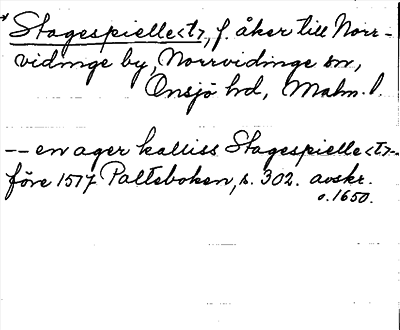 *Stagespielle<t>, f. åker till Norr-
vidinge by, Norrvidinge sn,
Onsjö hd, Malm. l.
-- en ager kalliss Stagespielle<t>-
före 1517 Palteboken, s. 302. avskr.
o. 1650.